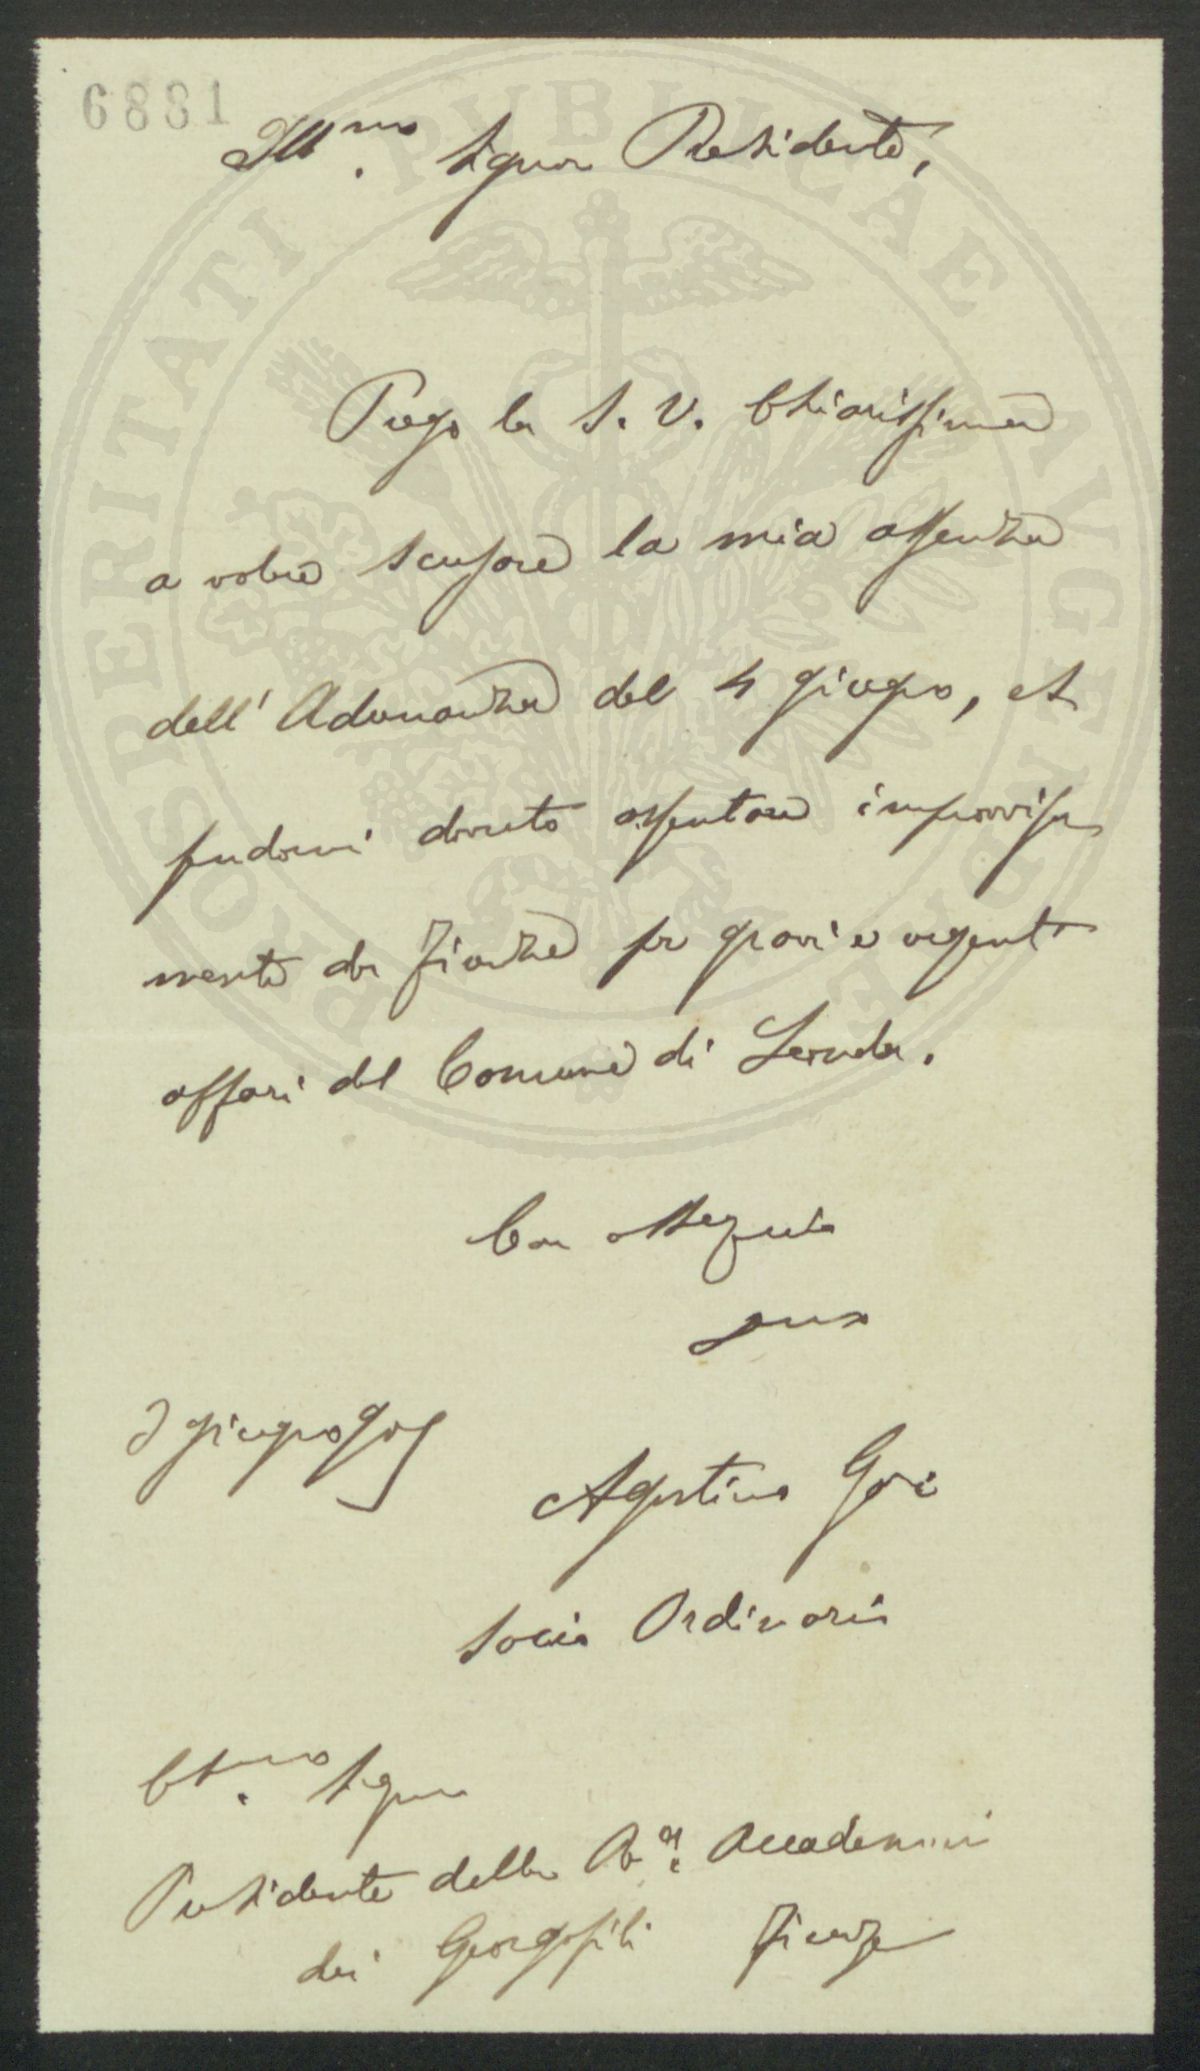 6881
PROSPERITATI PVBLICAE AVGENDAE
Ill.mo Signor Presidente,
Prego la S. V. Chiarissima
a voler scusare la mia assenza
dell' Adunanza del 4 giugno, es
sendomi dovuto assentare improvvisa
mente da Firenze per gravi e urgenti
affari del Comune di
Con ossequio
suo
giugno
Agostino Gori
Socio Ordinario
Ch.mo Signor
Presidente della R.e Accademia
dei Georgofili Firenze